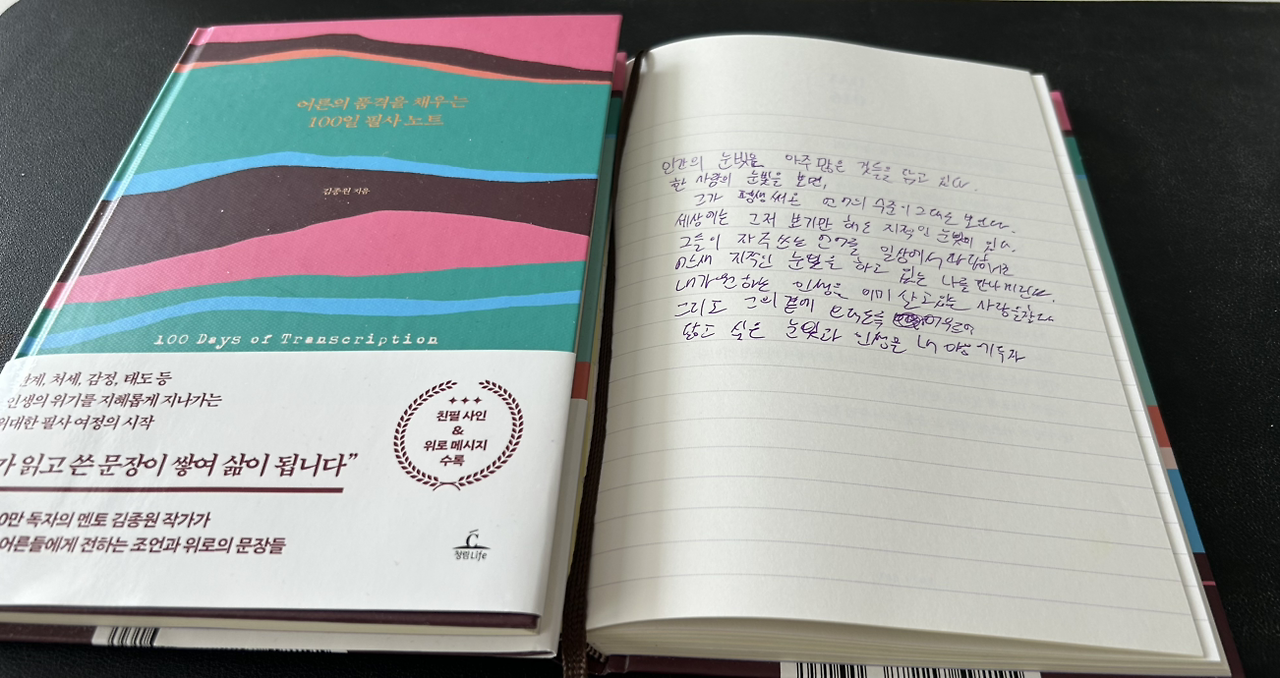 어른의 품격을 채우는
100일 필사 노트
김종원 지음
100 Days of Transcription
관계, 처세, 감정, 태도 등
인생의 위기를 지혜롭게 지나가는
위대한 필사 여정의 시작
가 읽고 쓴 문장이 쌓여 삶이 됩니다”
0만 독자의 멘토 김종원 작가가
어른들에게 전하는 조언과 위로의 문장들
친필 사인
&
위로 메시지
수록
청림Life
인간의 눈빛은 아주 많은 것들을 담고 있다.
한 사람의 눈빛을 보면,
그가 평생 써온 언어의 수준이 그대로 보인다.
세상에는 그저 보기만 해도 지적인 눈빛이 있다.
그들이 자주 쓰는 언어를 일상에서
어느새 지적인 눈빛을 하고 있는 나를 만나게 된다.
내가 원하는 인생을 이미 살고 있는 사람을
그리고 그의 곁에
닮고 싶은 눈빛과 인생을 내